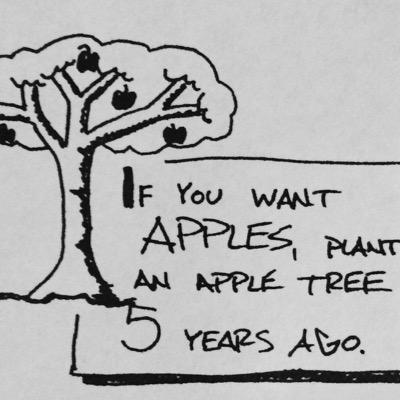 IF YOU WANT
APPLES, PLANT
AN APPLE TREE
5 YEARS AGO.